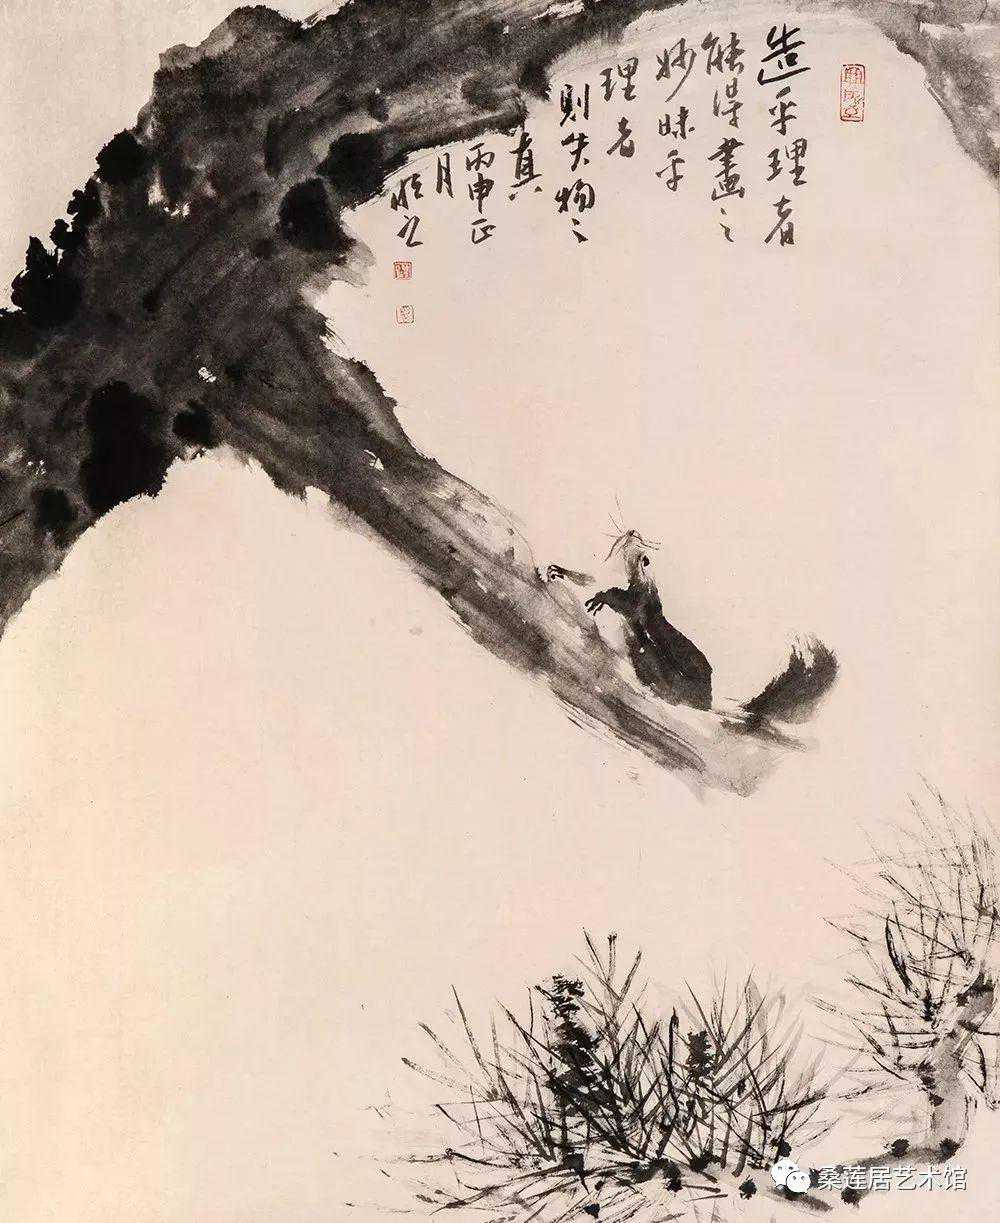 造乎理者
能得畫之
妙昧乎
理者
則失物之
真
丙申正
月
桑莲居艺术馆